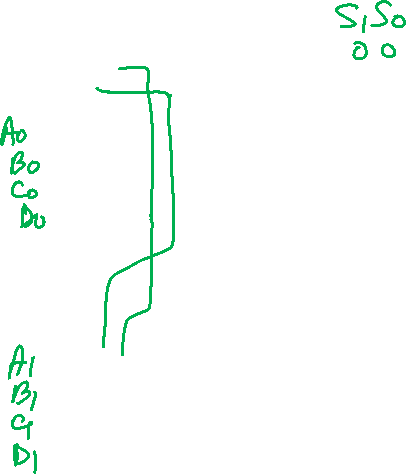 S1S0
0 0
A0
B0
C0
D0
A1
B1
C1
D1